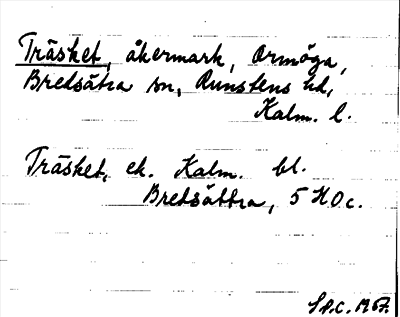 Träsket, åkermark, Ormöga,
Bredsätra sn, Runstens hd,
Kalm. l.
Träsket, ek. Kalm. bl.
Bredsättra, 5 H0c.
Sp.C. 1967.